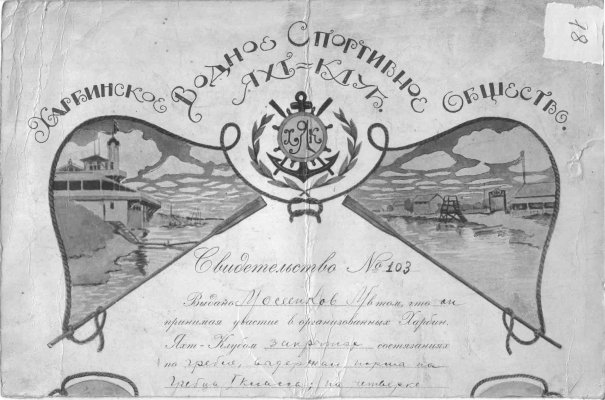 18
Харбинское Водное Спортивное Общество.
Яхт=Клуб.
ХЯК
Свидетельство № 103
Выдано М. в том, что он
принимая участие в организованных Харбин.
Яхт-Клубом закрытых состязаниях
по гребле, выдержал норма на
гребца I класса; на четверке